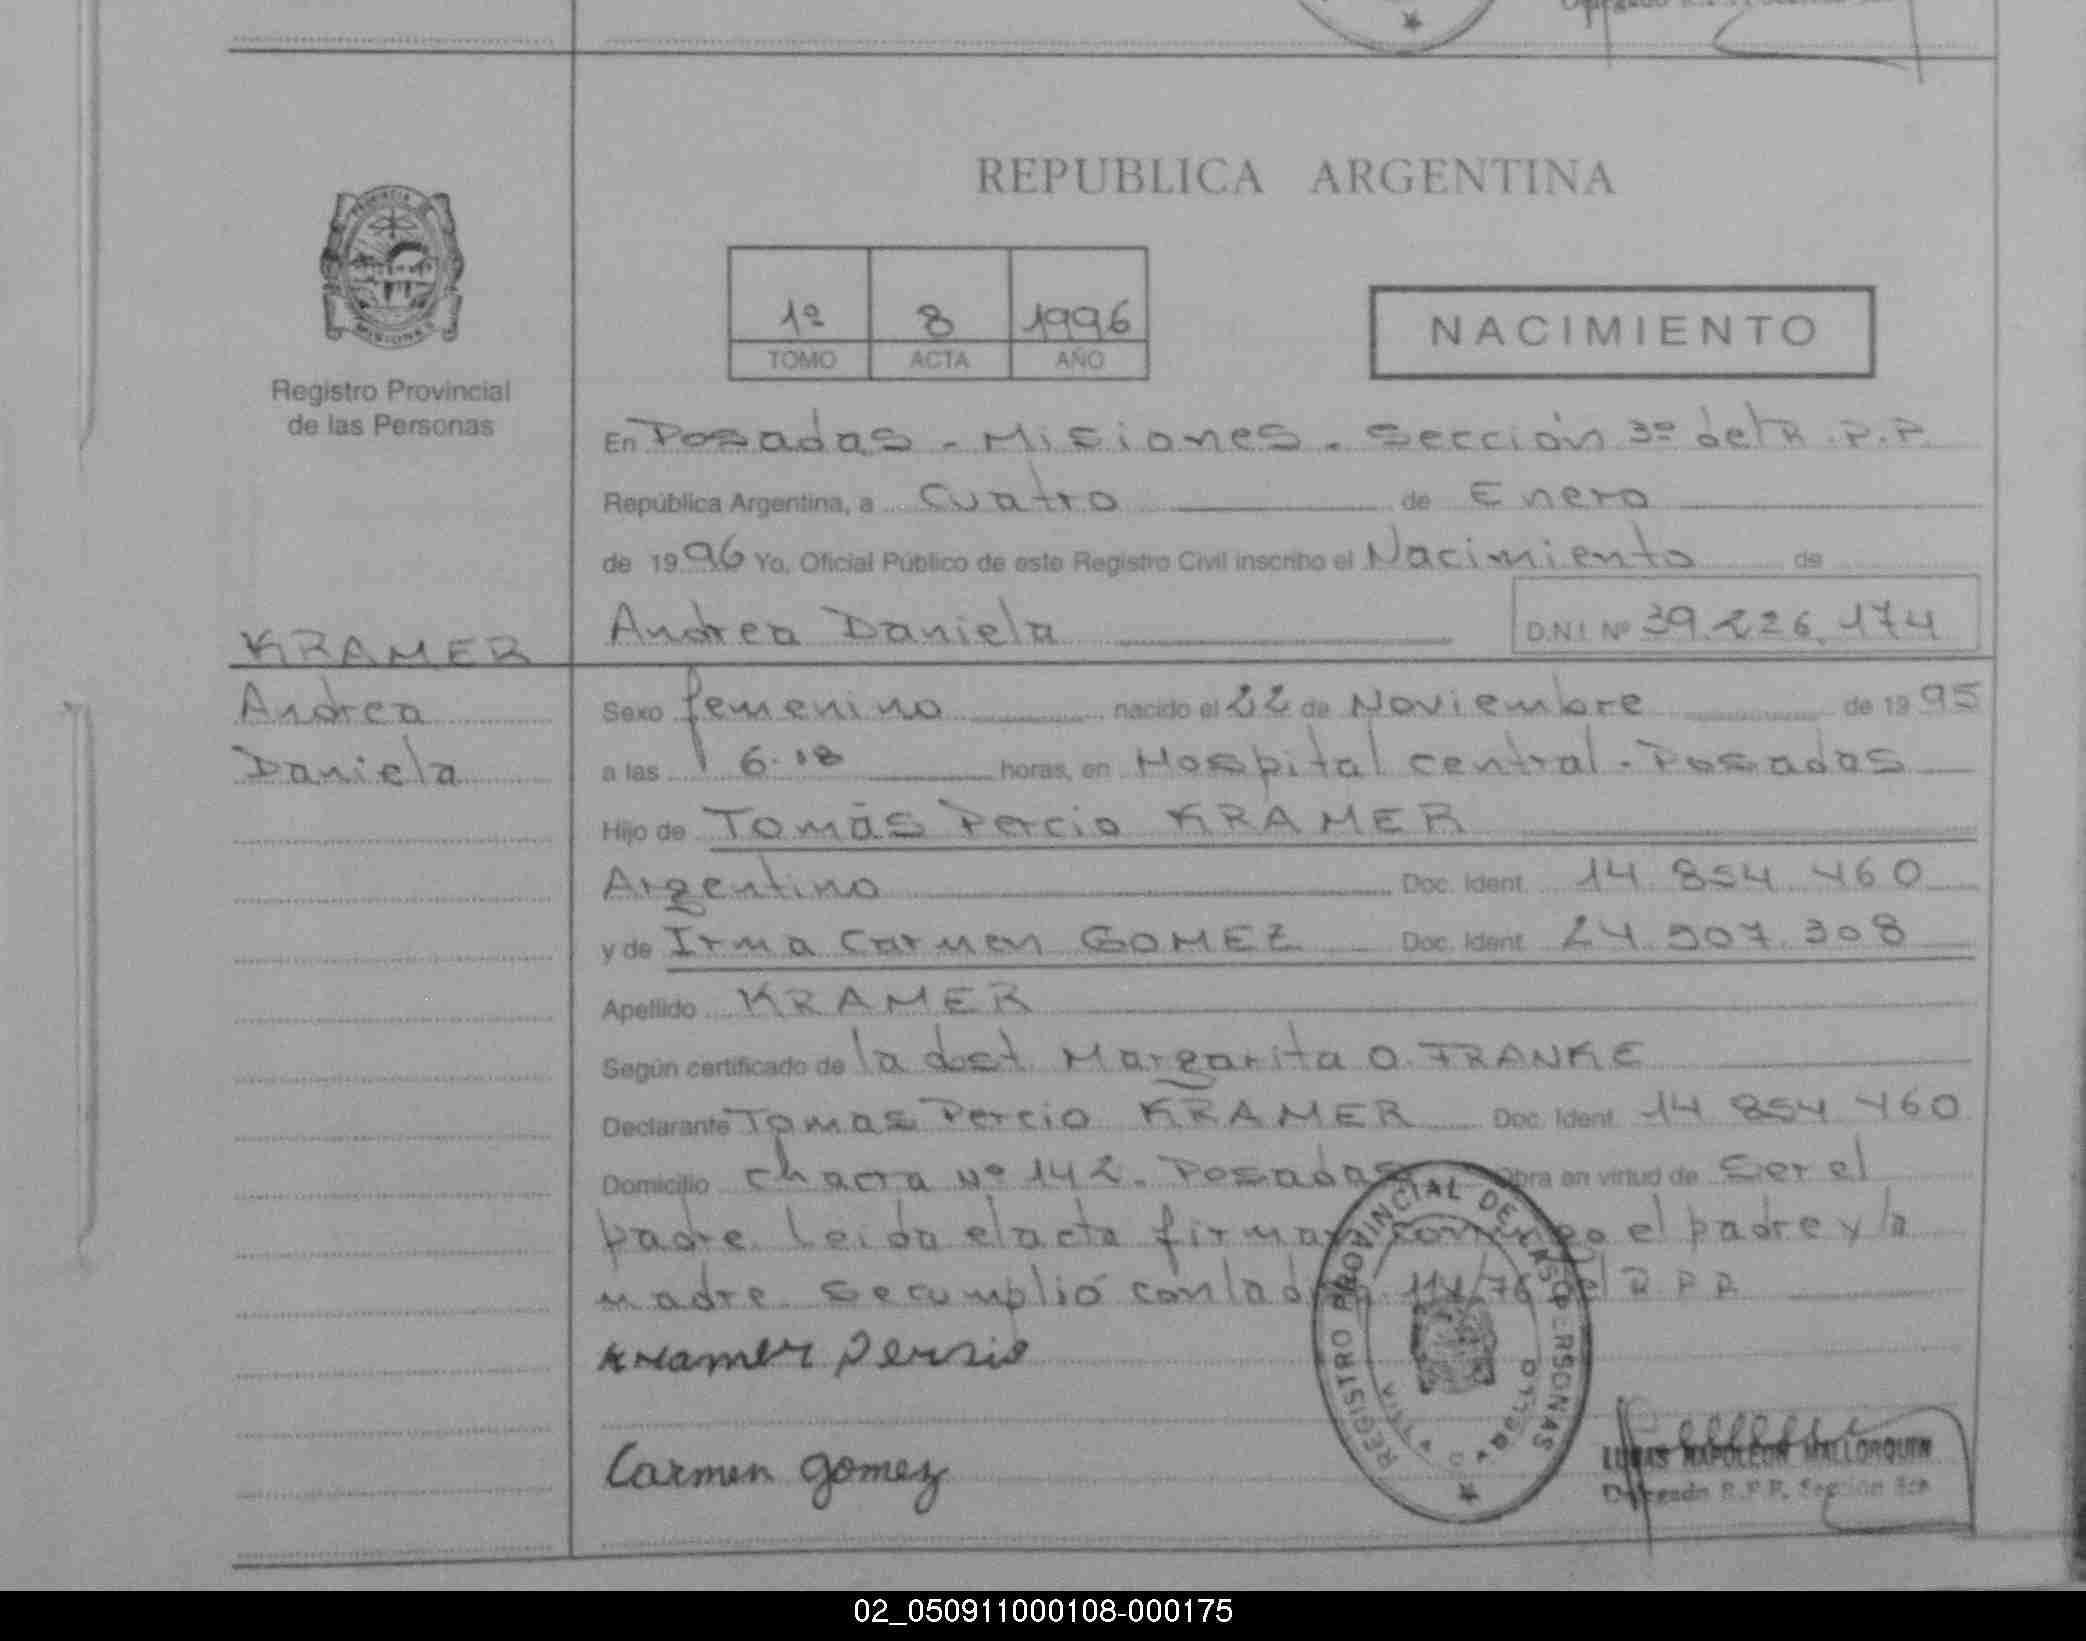 REPUBLICA ARGENTINA
PROVINCIA DE
MISIONES
Registro Provincial
de las Personas
1º 8 1996
TOMO ACTA AÑO
NACIMIENTO
En Posadas - Misiones. Sección 3º del R.P.P.
República Argentina, a cuatro de Enero
de 1996 Yo, Oficial Público de este Registro Civil inscribo el Nacimiento de
Andrea Daniela D.N.I. Nº 39.226.174
KRAMER
Andrea
Daniela
Sexo femenino nacido el 22 de Noviembre de 1995
a las 6.18 horas, en Hospital central. Posadas
Hijo de Tomás Percio KRAMER
Argentino Doc. Ident. 14.854.460
y de Irma Carmen GOMEZ Doc. Ident. 24.907.308
Apellido KRAMER
Según certificado de la dost. Margarita O. FRANKE
Declarante Tomas Percio KRAMER Doc. Ident. 14.854.460
Domicilio chacra Nº 142. Posadas Obra en virtud de ser el
padre. Leida el acta firman conmigo el padre y la
madre. Se cumplió con la 114/76 del R.P.P.
Kramer Persio
Carmen gomez
REGISTRO PROVINCIAL DE LAS PERSONAS
LUCAS NAPOLEON MALLORQUIN
Delegado R.P.P. Sección 3ra
02_050911000108-000175